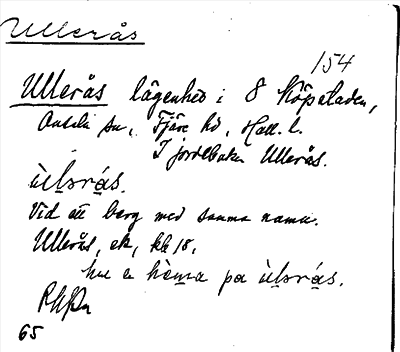 Ullerås
154
Ullerås lägenhed i 8 Köpstaden,
Onsala sn, Fjäre hd, Hall. l.
I jordeboken Ullerås.
ùl̥ərás.
Vid ett berg med samma namn.
Ullerås, ek, kb 18,
hu e hèma pa ùl̥ərás.
65